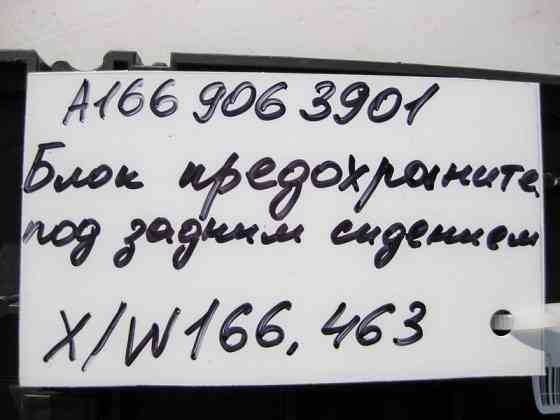 A166 906 3901
Блок предохраните
под задним сидением
X/W166, 463